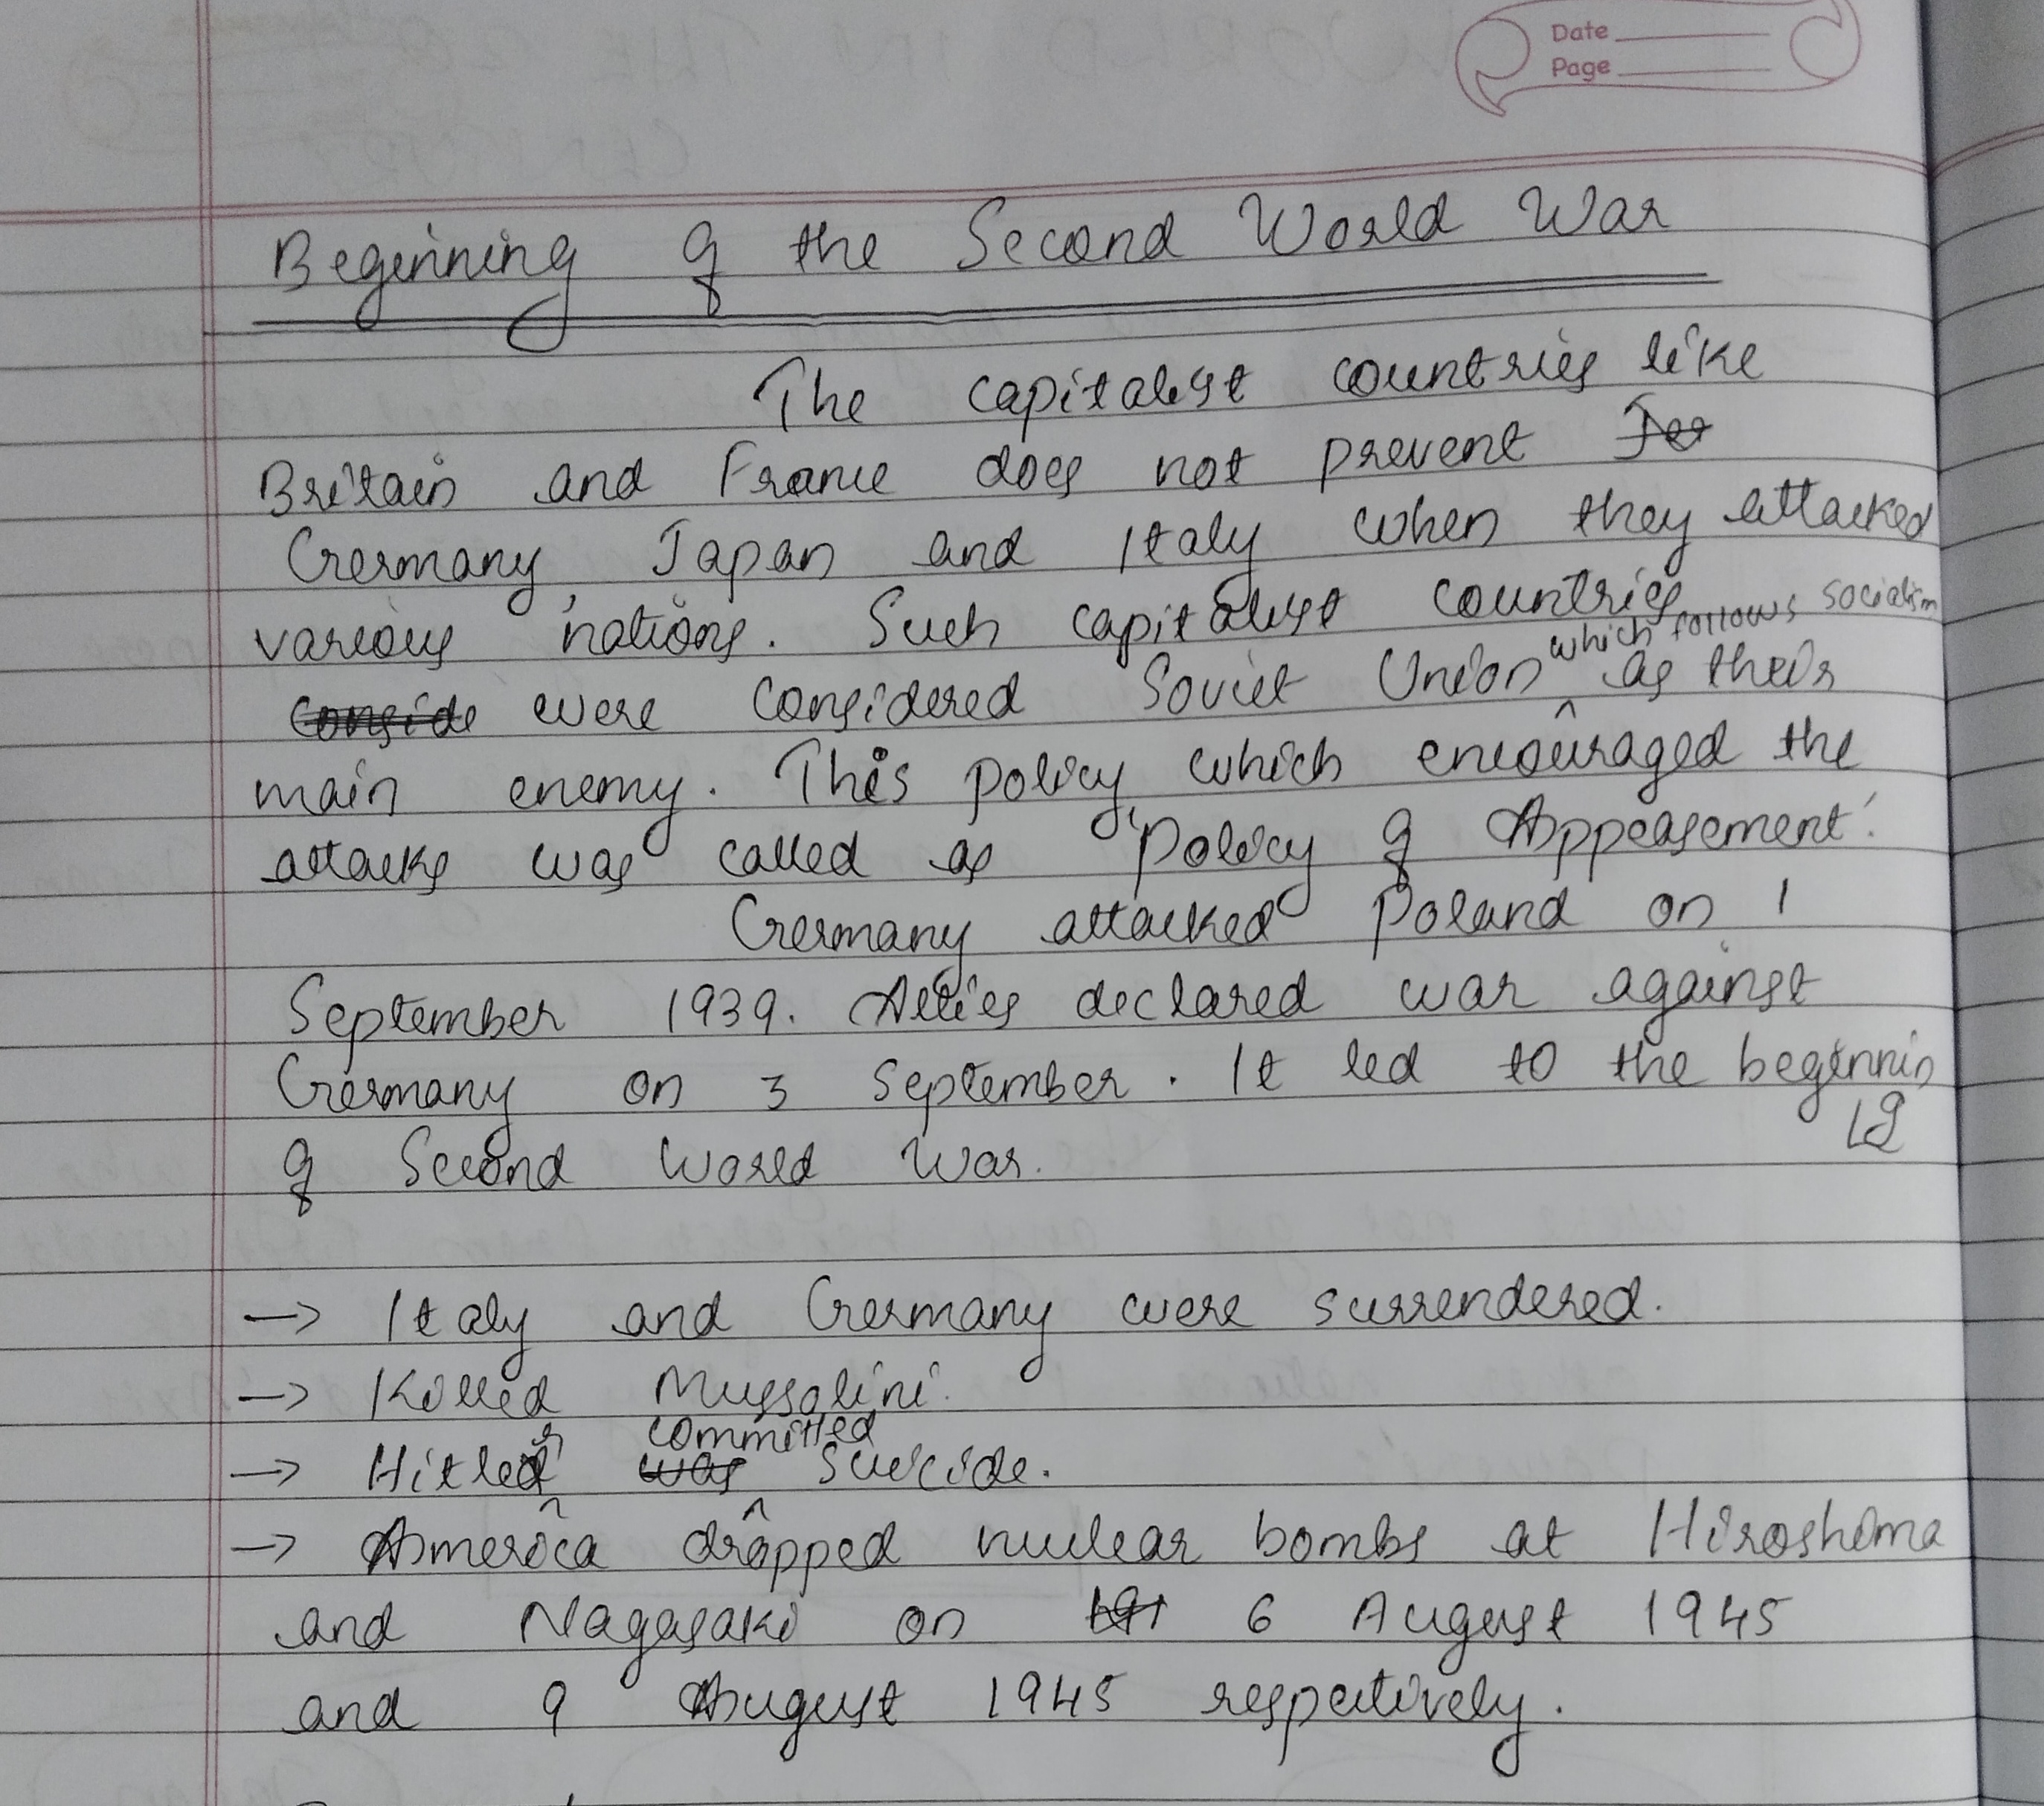 Date
Page
Beginning of the Second World War
The capitalist countries like
Britain and France does not prevent
Germany, Japan and Italy when they attacked
various nations. Such capitalist countries
were considered Soviet Union which follows socialism as their
main enemy. This policy which encouraged the
attacks was called as 'Policy of Appeasement'.
Germany attacked Poland on 1
September 1939. Allies declared war against
Germany on 3 September. It led to the beginnin
g
of Second World War.
→ Italy and Germany were surrendered.
→ Killed Mussolini.
→ Hitler committed suicide.
→ America dropped nuclear bombs at Hiroshima
and Nagasaki on 6 August 1945
and 9 August 1945 respectively.